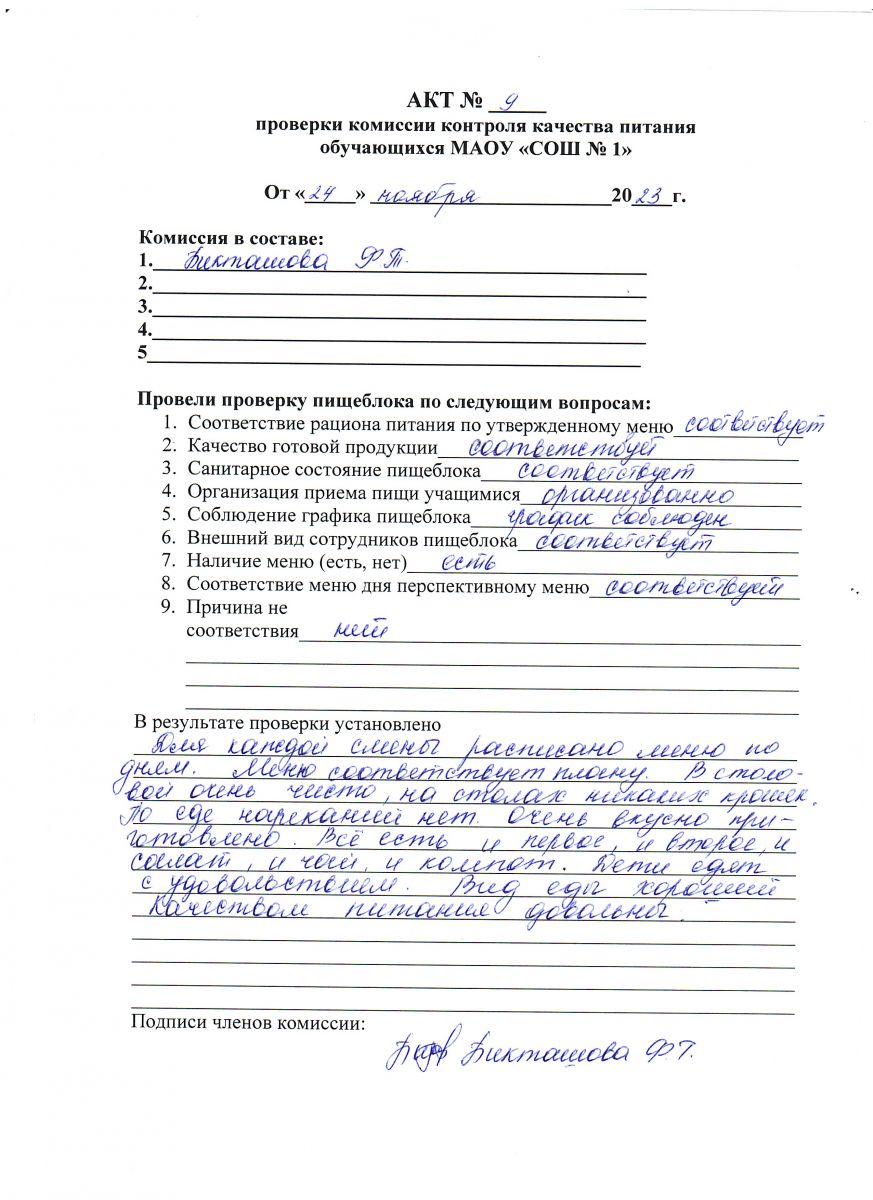 АКТ № 9
проверки комиссии контроля качества питания
обучающихся МАОУ «СОШ № 1»
От «24» ноября 2023 г.
Комиссия в составе:
1. Бикташова Ф.Т.
2.
3.
4.
5
Провели проверку пищеблока по следующим вопросам:
1. Соответствие рациона питания по утвержденному меню соответствует
2. Качество готовой продукции соответствует
3. Санитарное состояние пищеблока соответствует
4. Организация приема пищи учащимися организованно
5. Соблюдение графика пищеблока график соблюден
6. Внешний вид сотрудников пищеблока соответствует
7. Наличие меню (есть, нет) есть
8. Соответствие меню дня перспективному меню соответствует
9. Причина не
соответствия нет
В результате проверки установлено
Для каждой смены расписано меню по
дням. Меню соответствует плану. В столо-
вой очень чисто, на столах никаких крошек.
По еде нареканий нет. Очень вкусно при-
готовлено. Всё есть и первое, и второе, и
салат, и чай, и компот. Дети едят
с удовольствием. Вид еды хороший
Качеством питания довольны.
Подписи членов комиссии:
Бикташова Ф.Т.